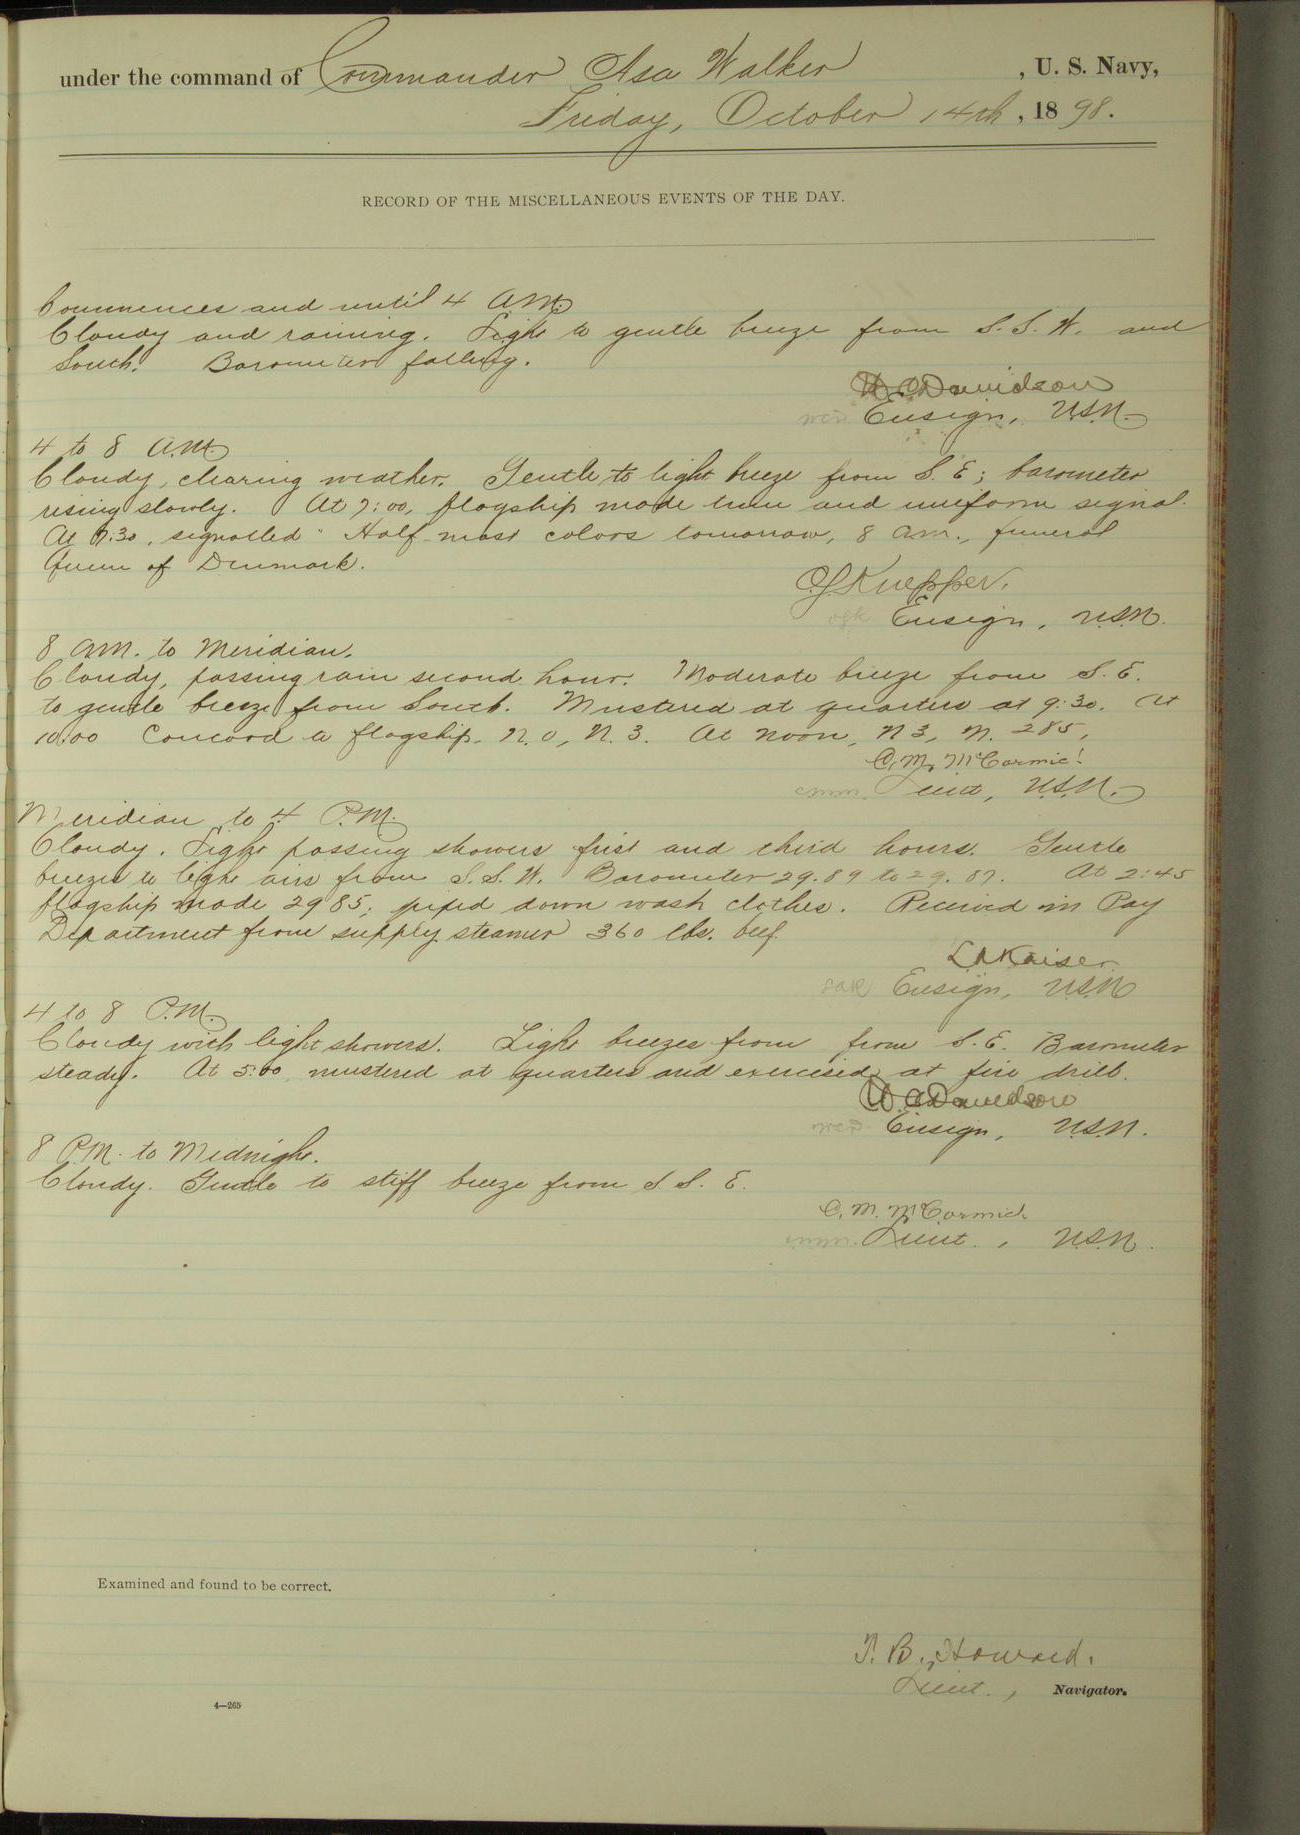 under the command of Commander Asa Walker, U. S. Navy,
Friday, October 14th, 1898.
RECORD OF THE MISCELLANEOUS EVENTS OF THE DAY.
Commences and until 4 A.M.
Cloudy and raining. Light to gentle breeze from S. S. W. and
South. Barometer falling.
W C Davidson
Ensign, U.S.N.
4 to 8 A.M.
Cloudy, clearing weather. Gentle to light breeze from S. E; barometer
rising slowly. At 7:00, flagship made time and uniform signal.
At 7:30, signalled "Half-mast colors tomorrow, 8 a.m., funeral
Queen of Denmark.
O G Knepper.
Ensign, U.S.N.
8 A.M. to Meridian.
Cloudy, passing rain second hour. Moderate breeze from S. E.
to gentle breeze from South. Mustered at quarters at 9:30. At
10:00 Concord to flagship. N. 0, N. 3. At noon, N 3, N. 285,
C. M. McCormick
Lieut, U.S.N.
Meridian to 4 P.M.
Cloudy. Light passing showers first and third hours. Gentle
breezes to light airs from S. S. W. Barometer 29.89 to 29.87. At 2:45
flagship made 2985; piped down wash clothes. Received in Pay
Department from supply steamer 360 lbs. beef.
L A Kaiser
Ensign, U.S.N
4 to 8 P.M.
Cloudy with light showers. Light breezes from from S. E. Barometer
steady. At 5:00 mustered at quarters and exercised at fire drill.
W. C Davidson
Ensign, U.S.N.
8 P.M. to Midnight.
Cloudy. Gentle to stiff breeze from S S. E.
C. M. McCormick
Lieut., U.S.N.
Examined and found to be correct.
T. B. Howard.
Lieut., Navigator.
4—265